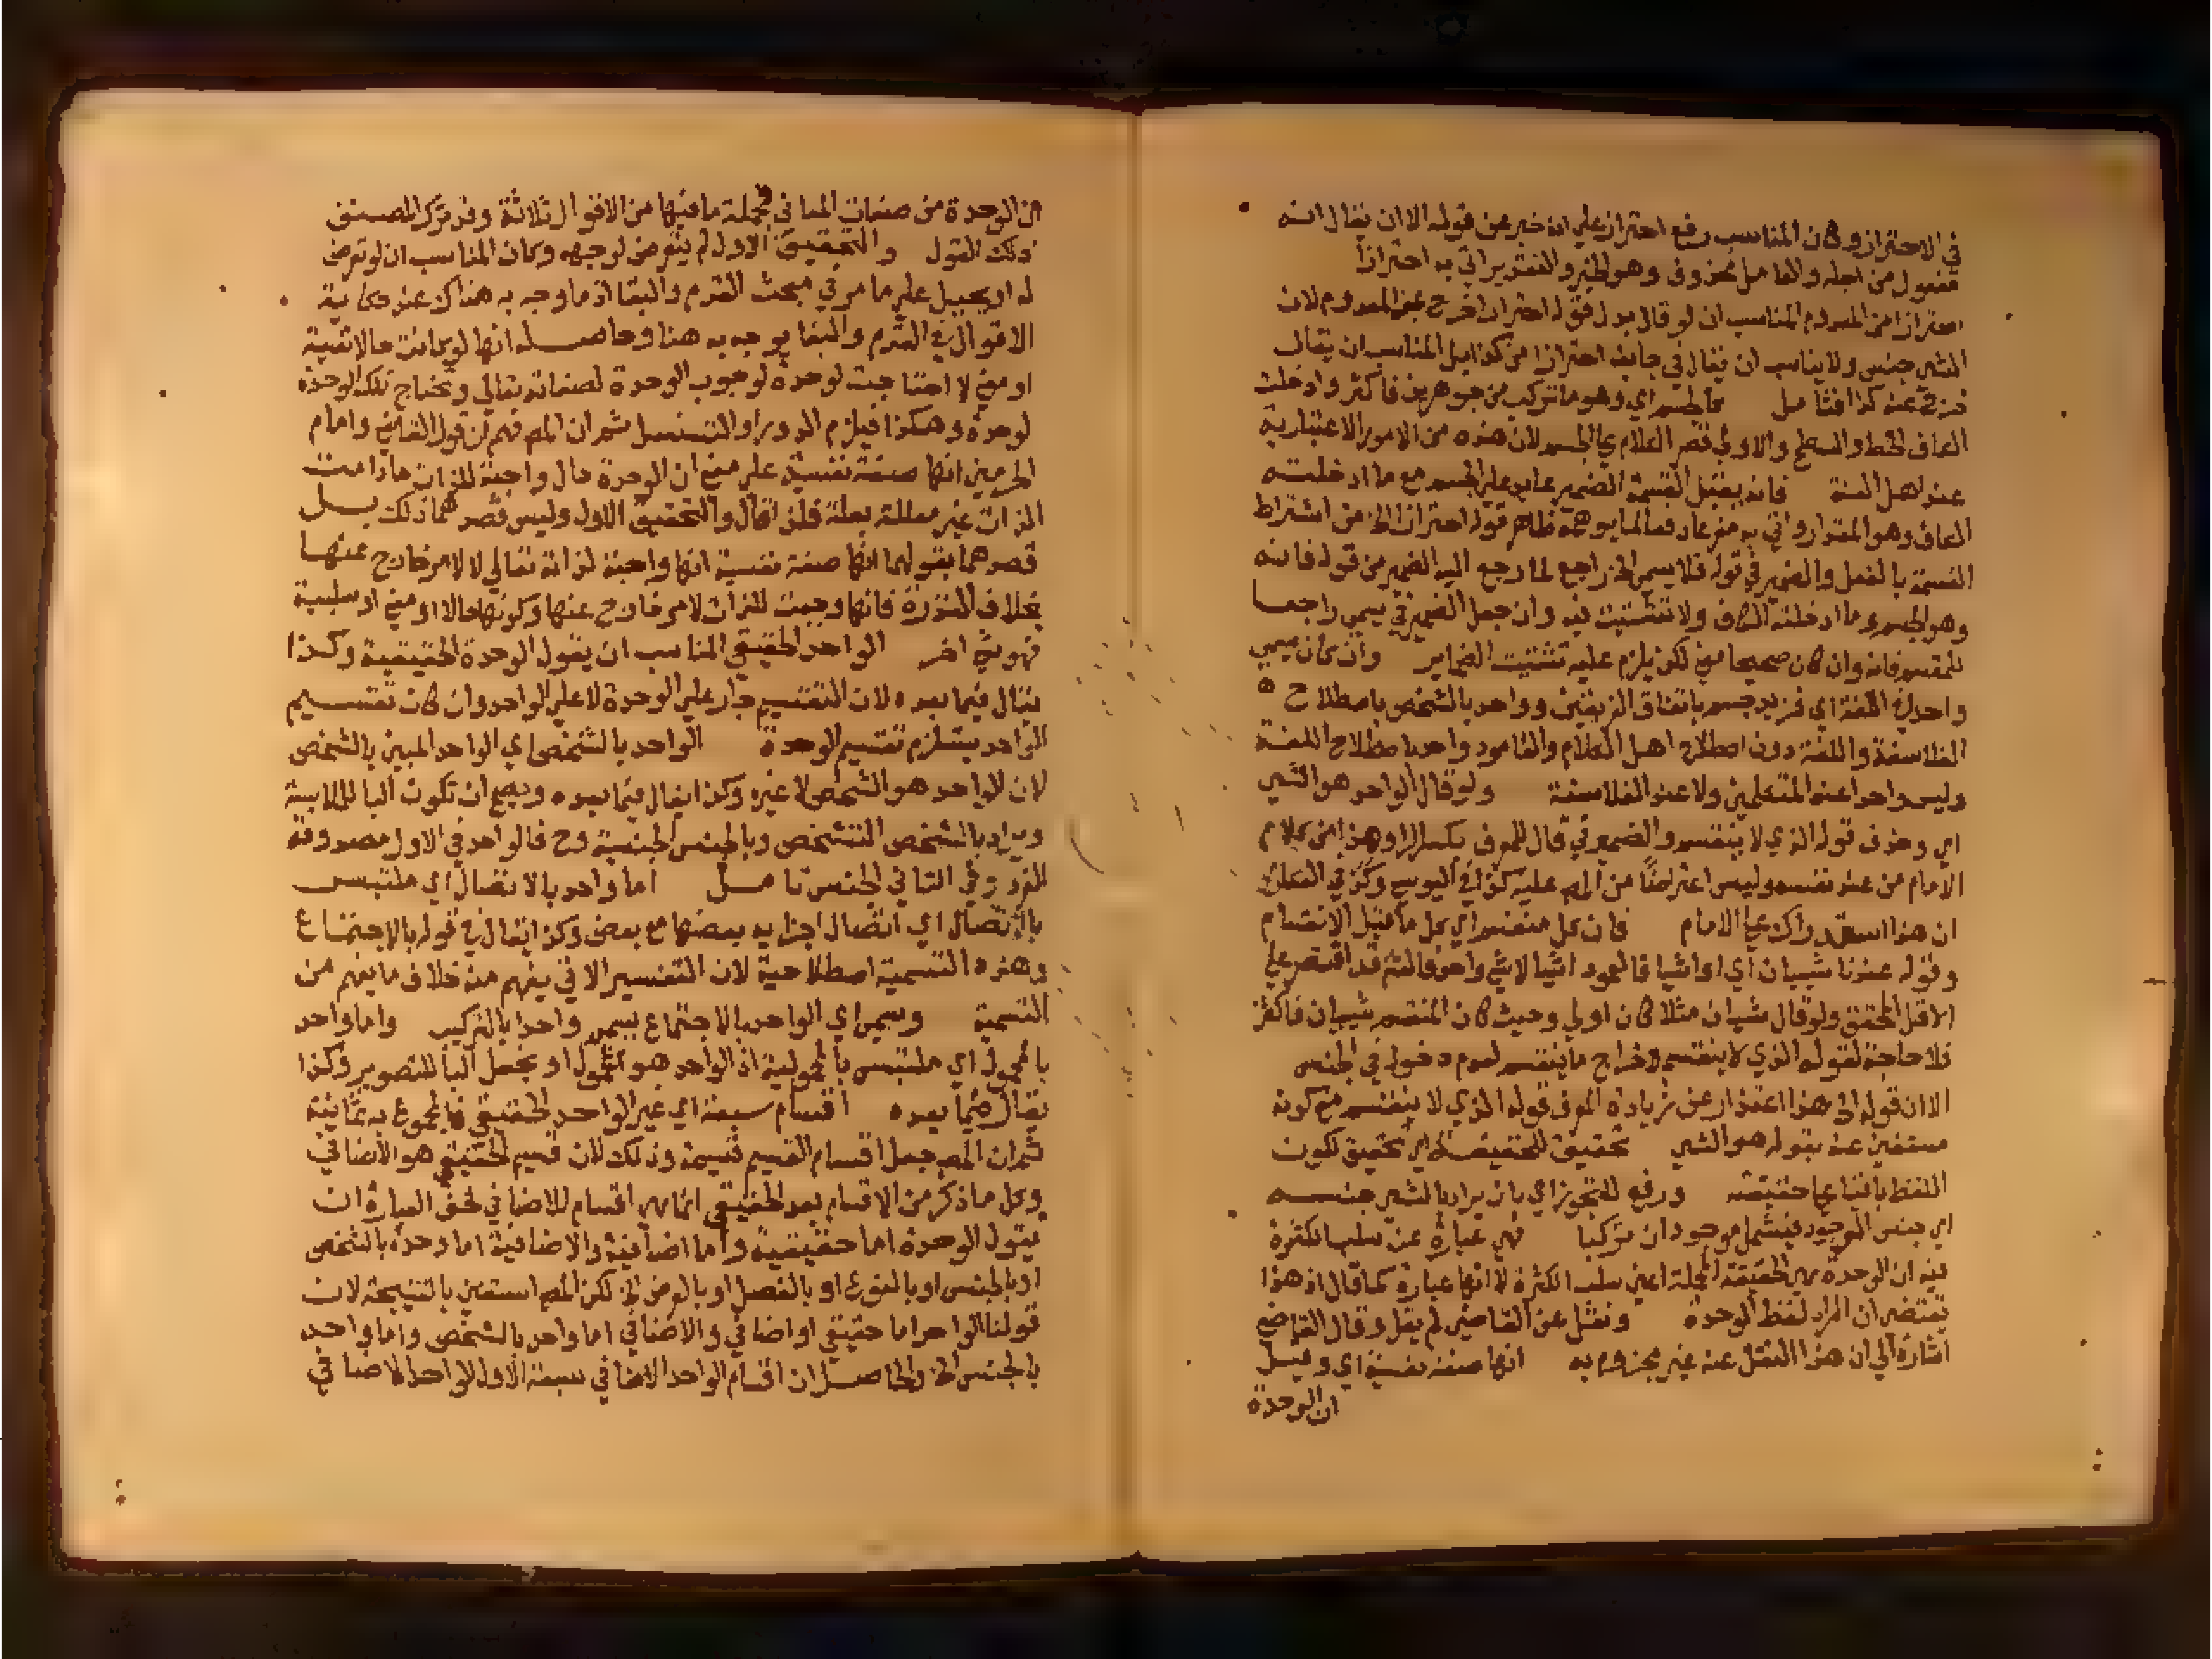 في الاحتراز وكان المناسب رفع احتراز علي انه خبر عن قوله الا ان يقال انه
مفعول من اجله والعامل محذوف وهو الخبر والتقدير اتي به احترازا
احترازا من المعدوم المناسب ان لو قال بدل قوله احترازا خرج عنه المعدوم لان
الشي جنس ولا يناسب ان يقال في جانبه احترازا من كذا بل المناسب ان يقال
خرج عنه كذا فتامل كالجسم اي وهو ما تركب من جوهرين فاكثر وادخلت
الكاف الخط والسطح والاولي قصر الكلام علي الجسم لان هذه من الامور الاعتبارية
عند اهل السنة فانه يقبل القسمة الضمير عايد علي الجسم مع ما ادخلته
الكاف وهو المقدار واتي به مفرعا دفعا لما يوهمه ظاهر قوله احترازا الخ من اشتراط
القسمة بالفعل والضمير في قوله فلا يسمي الخ راجع لما رجع اليه الضمير من قوله فانه
وهو الجسم وما ادخلته الكاف ولا تشتيت فيه وان جعل الضمير في يسمي راجعا
للمقسم فانه وان كان صحيحا معني لكن يلزم عليه تشتيت الضماير وان كان يسمي
واحدا في اللغة اي فزيد جسم باتفاق الفريقين وواحد بالشخص باصطلاح
الفلاسفة واللغة دون اصطلاح اهل الكلام والعامود واحد باصطلاح اللغة
وليس واحدا عند المتكلمين ولا عند الفلاسفة ولو قال الواحد هو الشي
اي وحذف قوله الذي لا ينقسم والضمير في قال للمعرف بكسر الرا وهذا من كلام
الامام من عند نفسه وليس اعتراضا من المص عليه كذا في اليوسي وكذا في السكتاني
ان هذا استدراك علي الامام فان كل منقسم اي كل ما قبل الانقسام
وقوله عندنا شييان اي او اشيا فالعمود اشيا لا شي واحد فالشم قد اقتصر علي
الاقل المحقق ولو قال شييان مثلا كان اولي وحيث كان المنقسم شييان فاكثر
فلا حاجة لقوله الذي لا ينقسم لاخراج ما ينقسم لعدم دخوله في الجنس
الا ان قوله الخ هذا اعتذار عن زيادة المعرف قوله الذي لا ينقسم مع كونه
مستغني عنه بقوله هو الشي تحقيق للحقيقة اي تحقيق لكون
اللفظ باقيا علي حقيقته ورفع للتجوز اي بان يراد بالشي جنسه
اي جنس الموجود فيشمل موجودان تركبا فهي عبارة عن سلب الكثرة
فيه ان الوحدة هي الحقيقة المجملة اعني سلب الكثرة لا انها عبارة كما قال اذ هذا
يقتضي ان المراد لفظ الوحدة ونقل عن القاضي لم يقل وقال القاضي
اشارة الي ان هذا النقل عنه غير مجزوم به انها صفة نفسية اي وقيل
ان الوحدة
ان الوحدة من صفات المعاني فجملة ما فيها من الاقوال ثلاثة وقد ترك المصنف
ذلك القول والتحقيق الاول لم يتعرض لوجهه وكان المناسب ان لو تعرض
له او يحيل علي ما مر في مبحث القدم والبقا اذ ما وجه به هناك عند حكاية
الاقوال في القدم والبقا يوجه به هنا وحاصله انها لو كانت حالا نفسية
او معني لاحتاجت لوحدة لوجوب الوحدة لصفاته تعالي وتحتاج تلك الوحدة
لوحدة وهكذا فيلزم الدور او التسلسل ثم ان المص فهم من قول القاضي وامام
الحرمين انها صفة نفسية علي معني ان الوحدة حال واجبة للذات ما دامت
الذات غير معللة بعلة فلذا قال والتحقيق الاول وليس قصدهما ذلك بل
قصدهما بقولهما انها صفة نفسية انها واجبة لذاته تعالي لا لامر خارج عنها
بخلاف القدرة فانها وجبت للذات لامر خارج عنها وكونها حالا او معني او سلبية
فهو شي اخر الواحد الحقيقي المناسب ان يقول الوحدة الحقيقية وكذا
يقال فيما بعده لان التقسيم جار علي الوحدة لا علي الواحد وان كان تقسيم
الواحد يستلزم تقسيم الوحدة الواحد بالشخص اي الواحد المبين بالشخص
لان الواحد هو الشخص لا غيره وكذا يقال فيما بعده ويصح ان تكون البا للملابسة
ويراد بالشخص التشخص وبالجنس الجنسية وح فالواحد في الاول مصدوقه
الفرد وفي الثاني الجنس تامل اما واحد بالاتصال اي ملتبس
بالاتصال اي اتصال اجزايه بعضها مع بعض وكذا يقال في قوله بالاجتماع
وهذه التسمية اصطلاحية لان التفسير الاتي يفهم منه خلاف ما يفهم من
التسمية وسمي اي الواحد بالاجتماع يسمي واحدا بالتركيب واما واحد
بالمحمول اي ملتبس بالمحمولية اذ الواحد هو المحمول او يجعل البا للتصوير وكذا
يقال فيما بعده اقسام سبعة اي غير الواحد الحقيقي فالمجموع به ثمانية
ثم ان المص جعل اقسام القسيم قسيمة وذلك لان قسيم الحقيقي هو الاضافي
وكل ما ذكر من الاقسام بعد الحقيقي انما هي اقسام للاضافي فحق العبارة ان
يقول الوحدة اما حقيقية واما اضافية والاضافية اما وحدة بالشخص
او بالجنس او بالنوع او بالفصل او بالعرض الخ لكن المص استغني بالنتيجة لان
قولنا الواحد اما حقيقي او اضافي والاضافي اما واحد بالشخص واما واحد
بالجنس الخ والحاصل ان اقسام الواحد الاضافي سبعة الاول الواحد الاضافي